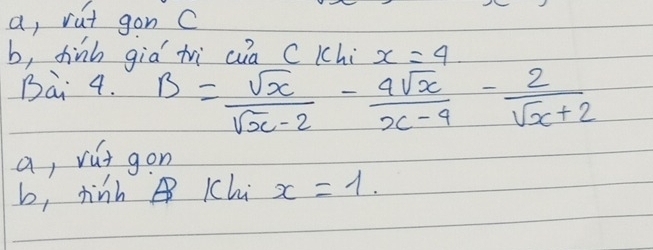 a, rút gọn C
b, tính giá trị của C khi x = 4
Bài 4. B = √x/(√x - 2) - 4√x/(x - 4) - 2/(√x + 2)
a, rút gọn
b, tính B khi x = 1.